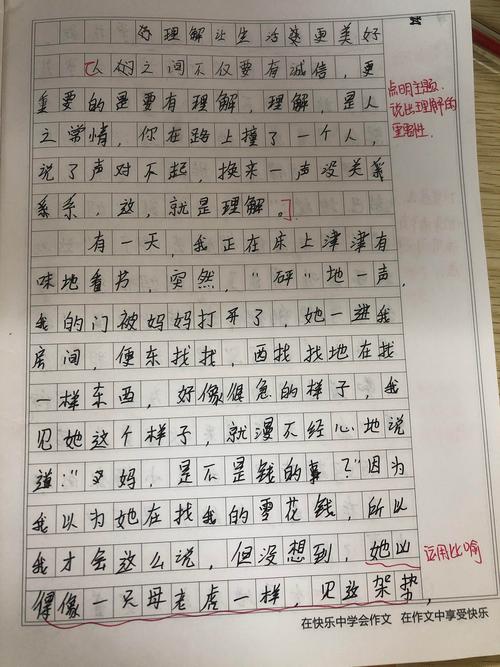 理解让生活变更美好
人的之间不仅要有诚信，更
重要的是要有理解，理解，是人
之常情，你在路上撞了一个人，
说了声对不起，换来一声没关系
系，这，就是理解。
点明主题
说出理解的
重要性
有一天，我正在床上津津有
味地看书，突然，“砰”地一声，
我的门被妈妈打开了，她一进我
房间，便东找找，西找找地在找
一样东西，好像很急的样子，我
见她这个样子，就漫不经心地说
道：“妈，是不是钱的事？”因为
我以为她在找我的零花钱，所以
我才会这么说，但没想到，她凶
运用比喻
得像一只母老虎一样，见这架势，
在快乐中学会作文 在作文中享受快乐